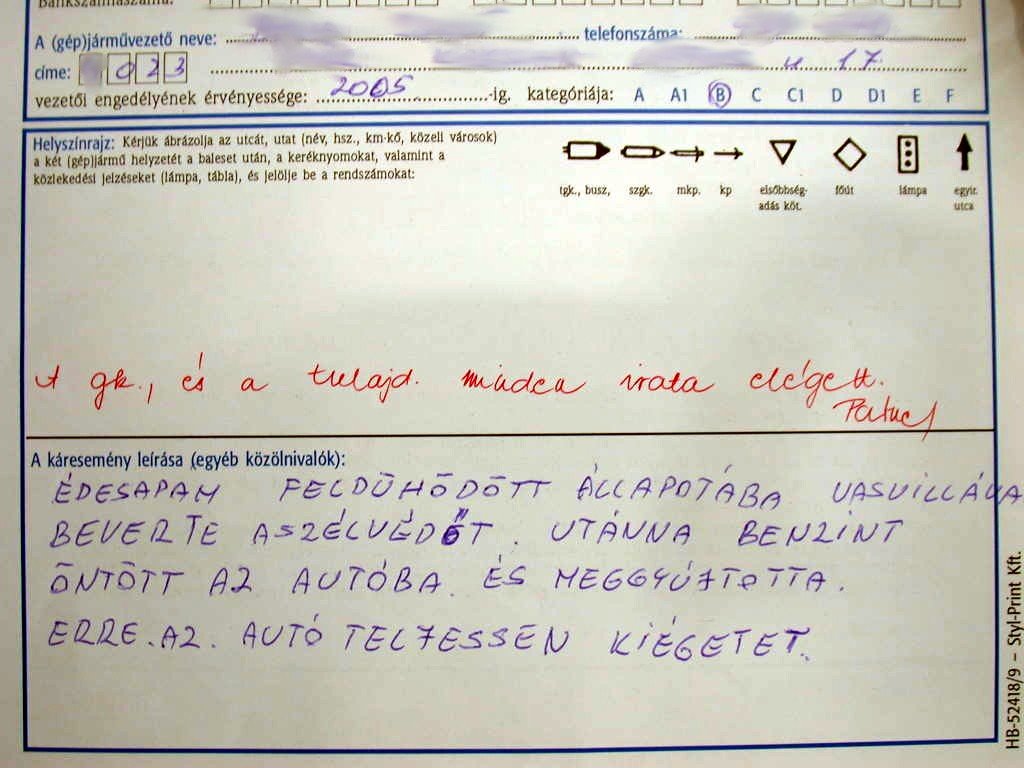 Bankszámlaszáma:
A (gép)járművezető neve: telefonszáma:
címe: 023 u 17.
vezetői engedélyének érvényessége: 2005 -ig. kategóriája: A A1 B C C1 D D1 E F
Helyszínrajz: Kérjük ábrázolja az utcát, utat (név, hsz., km-kő, közeli városok)
a két (gép)jármű helyzetét a baleset után, a keréknyomokat, valamint a
közlekedési jelzéseket (lámpa, tábla), és jelölje be a rendszámokat:
tgk., busz, szgk. mkp. kp elsőbbség- főút lámpa egyir.
adás köt. utca
A gk., és a tulajd. minden irata elégett.
A káresemény leírása (egyéb közölnivalók):
ÉDESAPAM FELDÜHÖDÖTT ÁLLAPOTÁBA VASVILLÁVA
BEVERTE ASZÉLVÉDŐT. UTÁNNA BENZINT
ÖNTÖTT AZ AUTÓBA. ÉS MEGGYÚJTOTTA.
ERRE.AZ. AUTÓ TELJESSEN KIÉGETET.
HB-52418/9 – Styl-Print Kft.